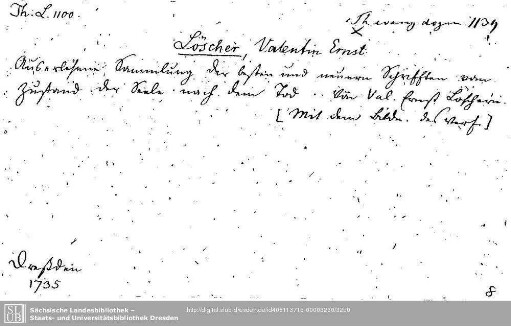 Th. L. 1100.
Th. evang. dogm. 1139
Löscher, Valentin Ernst
Auserlesene Sammlung der besten und neuern Schrifften vom
Zustand der Seele nach dem Tod .. Von Val. Ernst Löschern.
[Mit dem Bildn. des Verf.]
Dreßden
1735
8
SLUB
Sächsische Landesbibliothek –
Staats- und Universitätsbibliothek Dresden